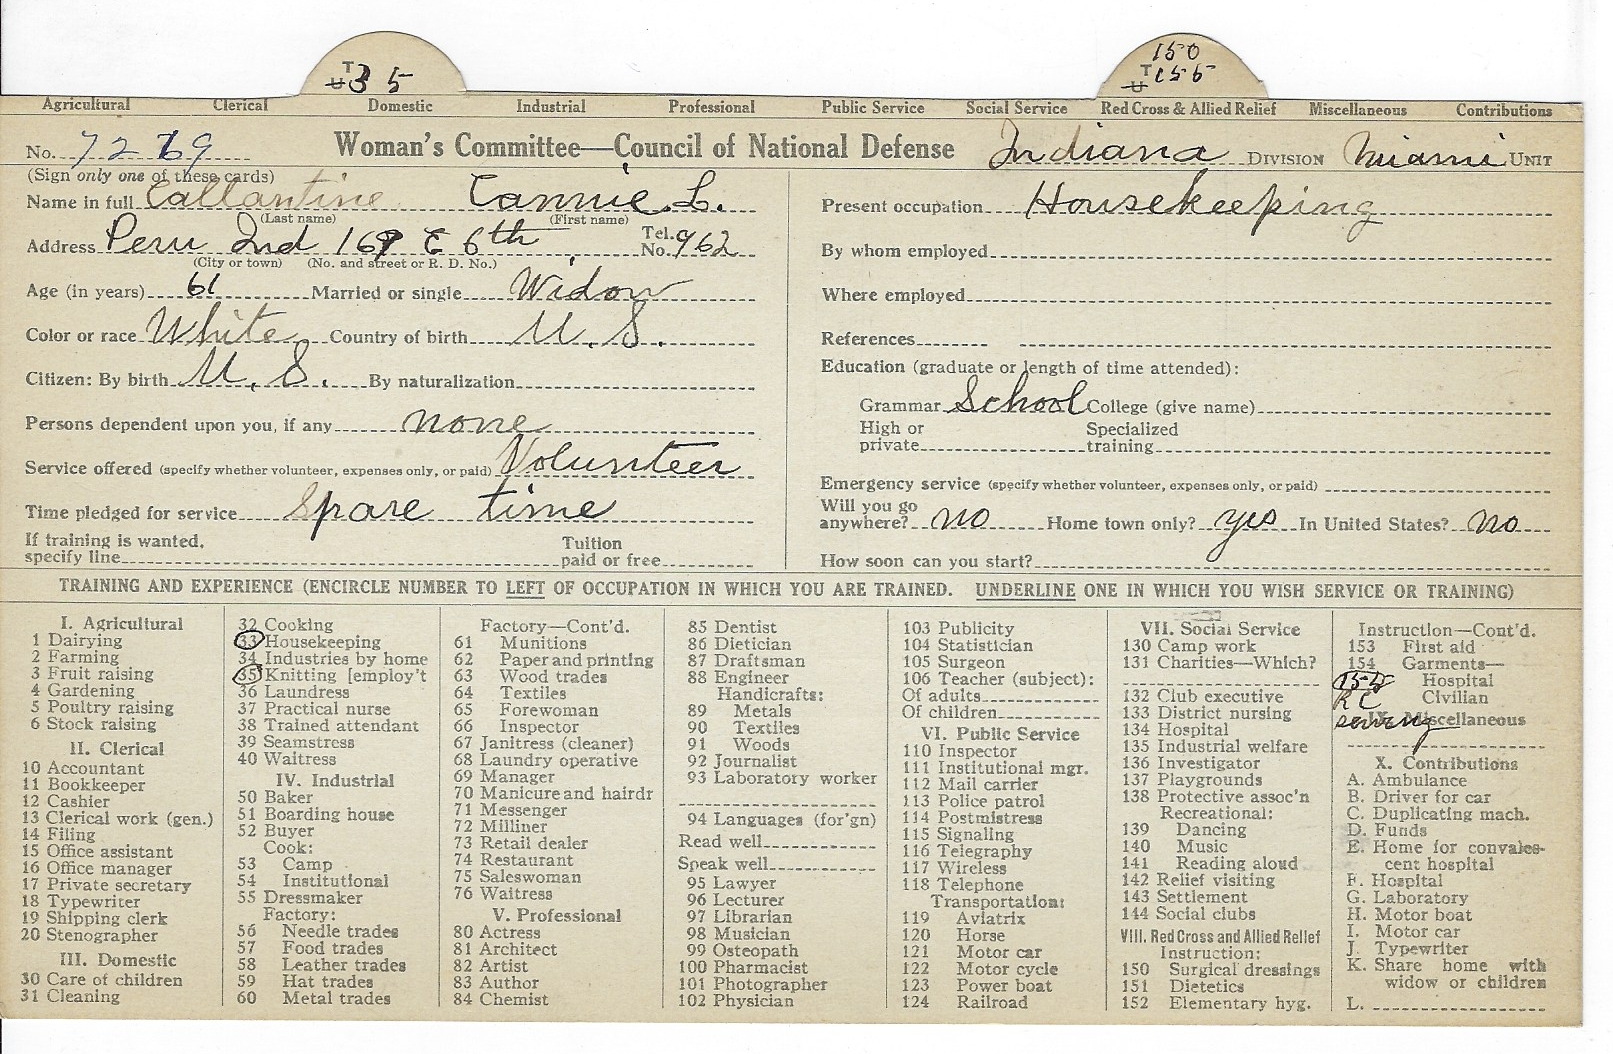 T U 35
150
T U 155
Agricultural Clerical Domestic Industrial Professional Public Service Social Service Red Cross & Allied Relief Miscellaneous Contributions
No. 7269 Woman's Committee—Council of National Defense Indiana DIVISION Miami UNIT
(Sign only one of these cards)
Name in full Callantine Cannie L.
(Last name) (First name)
Address Peru Ind 169 E 6th Tel. No. 962
(City or town) (No. and street or R. D. No.)
Age (in years) 61 Married or single Widow
Color or race White Country of birth U. S.
Citizen: By birth U. S. By naturalization
Persons dependent upon you, if any none
Service offered (specify whether volunteer, expenses only, or paid) Volunteer
Time pledged for service Spare time
If training is wanted, specify line Tuition paid or free
Present occupation Housekeeping
By whom employed
Where employed
References
Education (graduate or length of time attended):
Grammar School College (give name)
High or private Specialized training
Emergency service (specify whether volunteer, expenses only, or paid)
Will you go anywhere? no Home town only? yes In United States? no
How soon can you start?
TRAINING AND EXPERIENCE (ENCIRCLE NUMBER TO LEFT OF OCCUPATION IN WHICH YOU ARE TRAINED. UNDERLINE ONE IN WHICH YOU WISH SERVICE OR TRAINING)
I. Agricultural
1 Dairying
2 Farming
3 Fruit raising
4 Gardening
5 Poultry raising
6 Stock raising
II. Clerical
10 Accountant
11 Bookkeeper
12 Cashier
13 Clerical work (gen.)
14 Filing
15 Office assistant
16 Office manager
17 Private secretary
18 Typewriter
19 Shipping clerk
20 Stenographer
III. Domestic
30 Care of children
31 Cleaning
32 Cooking
33 Housekeeping
34 Industries by home
35 Knitting [employ't
36 Laundress
37 Practical nurse
38 Trained attendant
39 Seamstress
40 Waitress
IV. Industrial
50 Baker
51 Boarding house
52 Buyer
Cook:
53 Camp
54 Institutional
55 Dressmaker
Factory:
56 Needle trades
57 Food trades
58 Leather trades
59 Hat trades
60 Metal trades
Factory—Cont'd.
61 Munitions
62 Paper and printing
63 Wood trades
64 Textiles
65 Forewoman
66 Inspector
67 Janitress (cleaner)
68 Laundry operative
69 Manager
70 Manicure and hairdr
71 Messenger
72 Milliner
73 Retail dealer
74 Restaurant
75 Saleswoman
76 Waitress
V. Professional
80 Actress
81 Architect
82 Artist
83 Author
84 Chemist
85 Dentist
86 Dietician
87 Draftsman
88 Engineer
Handicrafts:
89 Metals
90 Textiles
91 Woods
92 Journalist
93 Laboratory worker
94 Languages (for'gn)
Read well
Speak well
95 Lawyer
96 Lecturer
97 Librarian
98 Musician
99 Osteopath
100 Pharmacist
101 Photographer
102 Physician
103 Publicity
104 Statistician
105 Surgeon
106 Teacher (subject):
Of adults
Of children
VI. Public Service
110 Inspector
111 Institutional mgr.
112 Mail carrier
113 Police patrol
114 Postmistress
115 Signaling
116 Telegraphy
117 Wireless
118 Telephone
Transportation:
119 Aviatrix
120 Horse
121 Motor car
122 Motor cycle
123 Power boat
124 Railroad
VII. Social Service
130 Camp work
131 Charities—Which?
132 Club executive
133 District nursing
134 Hospital
135 Industrial welfare
136 Investigator
137 Playgrounds
138 Protective assoc'n
Recreational:
139 Dancing
140 Music
141 Reading aloud
142 Relief visiting
143 Settlement
144 Social clubs
VIII. Red Cross and Allied Relief
Instruction:
150 Surgical dressings
151 Dietetics
152 Elementary hyg.
Instruction—Cont'd.
153 First aid
154 Garments—
155 Hospital
R C Civilian
IX. Miscellaneous
sewing
X. Contributions
A. Ambulance
B. Driver for car
C. Duplicating mach.
D. Funds
E. Home for convalescent hospital
F. Hospital
G. Laboratory
H. Motor boat
I. Motor car
J. Typewriter
K. Share home with widow or children
L.